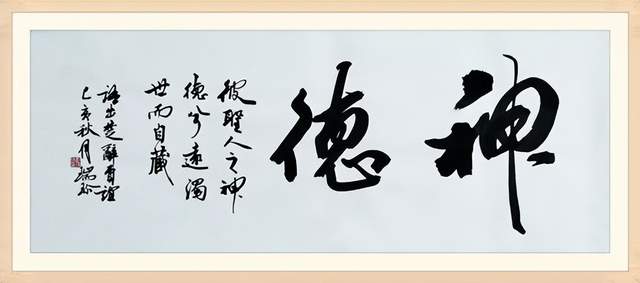 神德
彼聖人之神
德兮遠濁
世而自藏
語出楚辭賈誼
己亥秋月